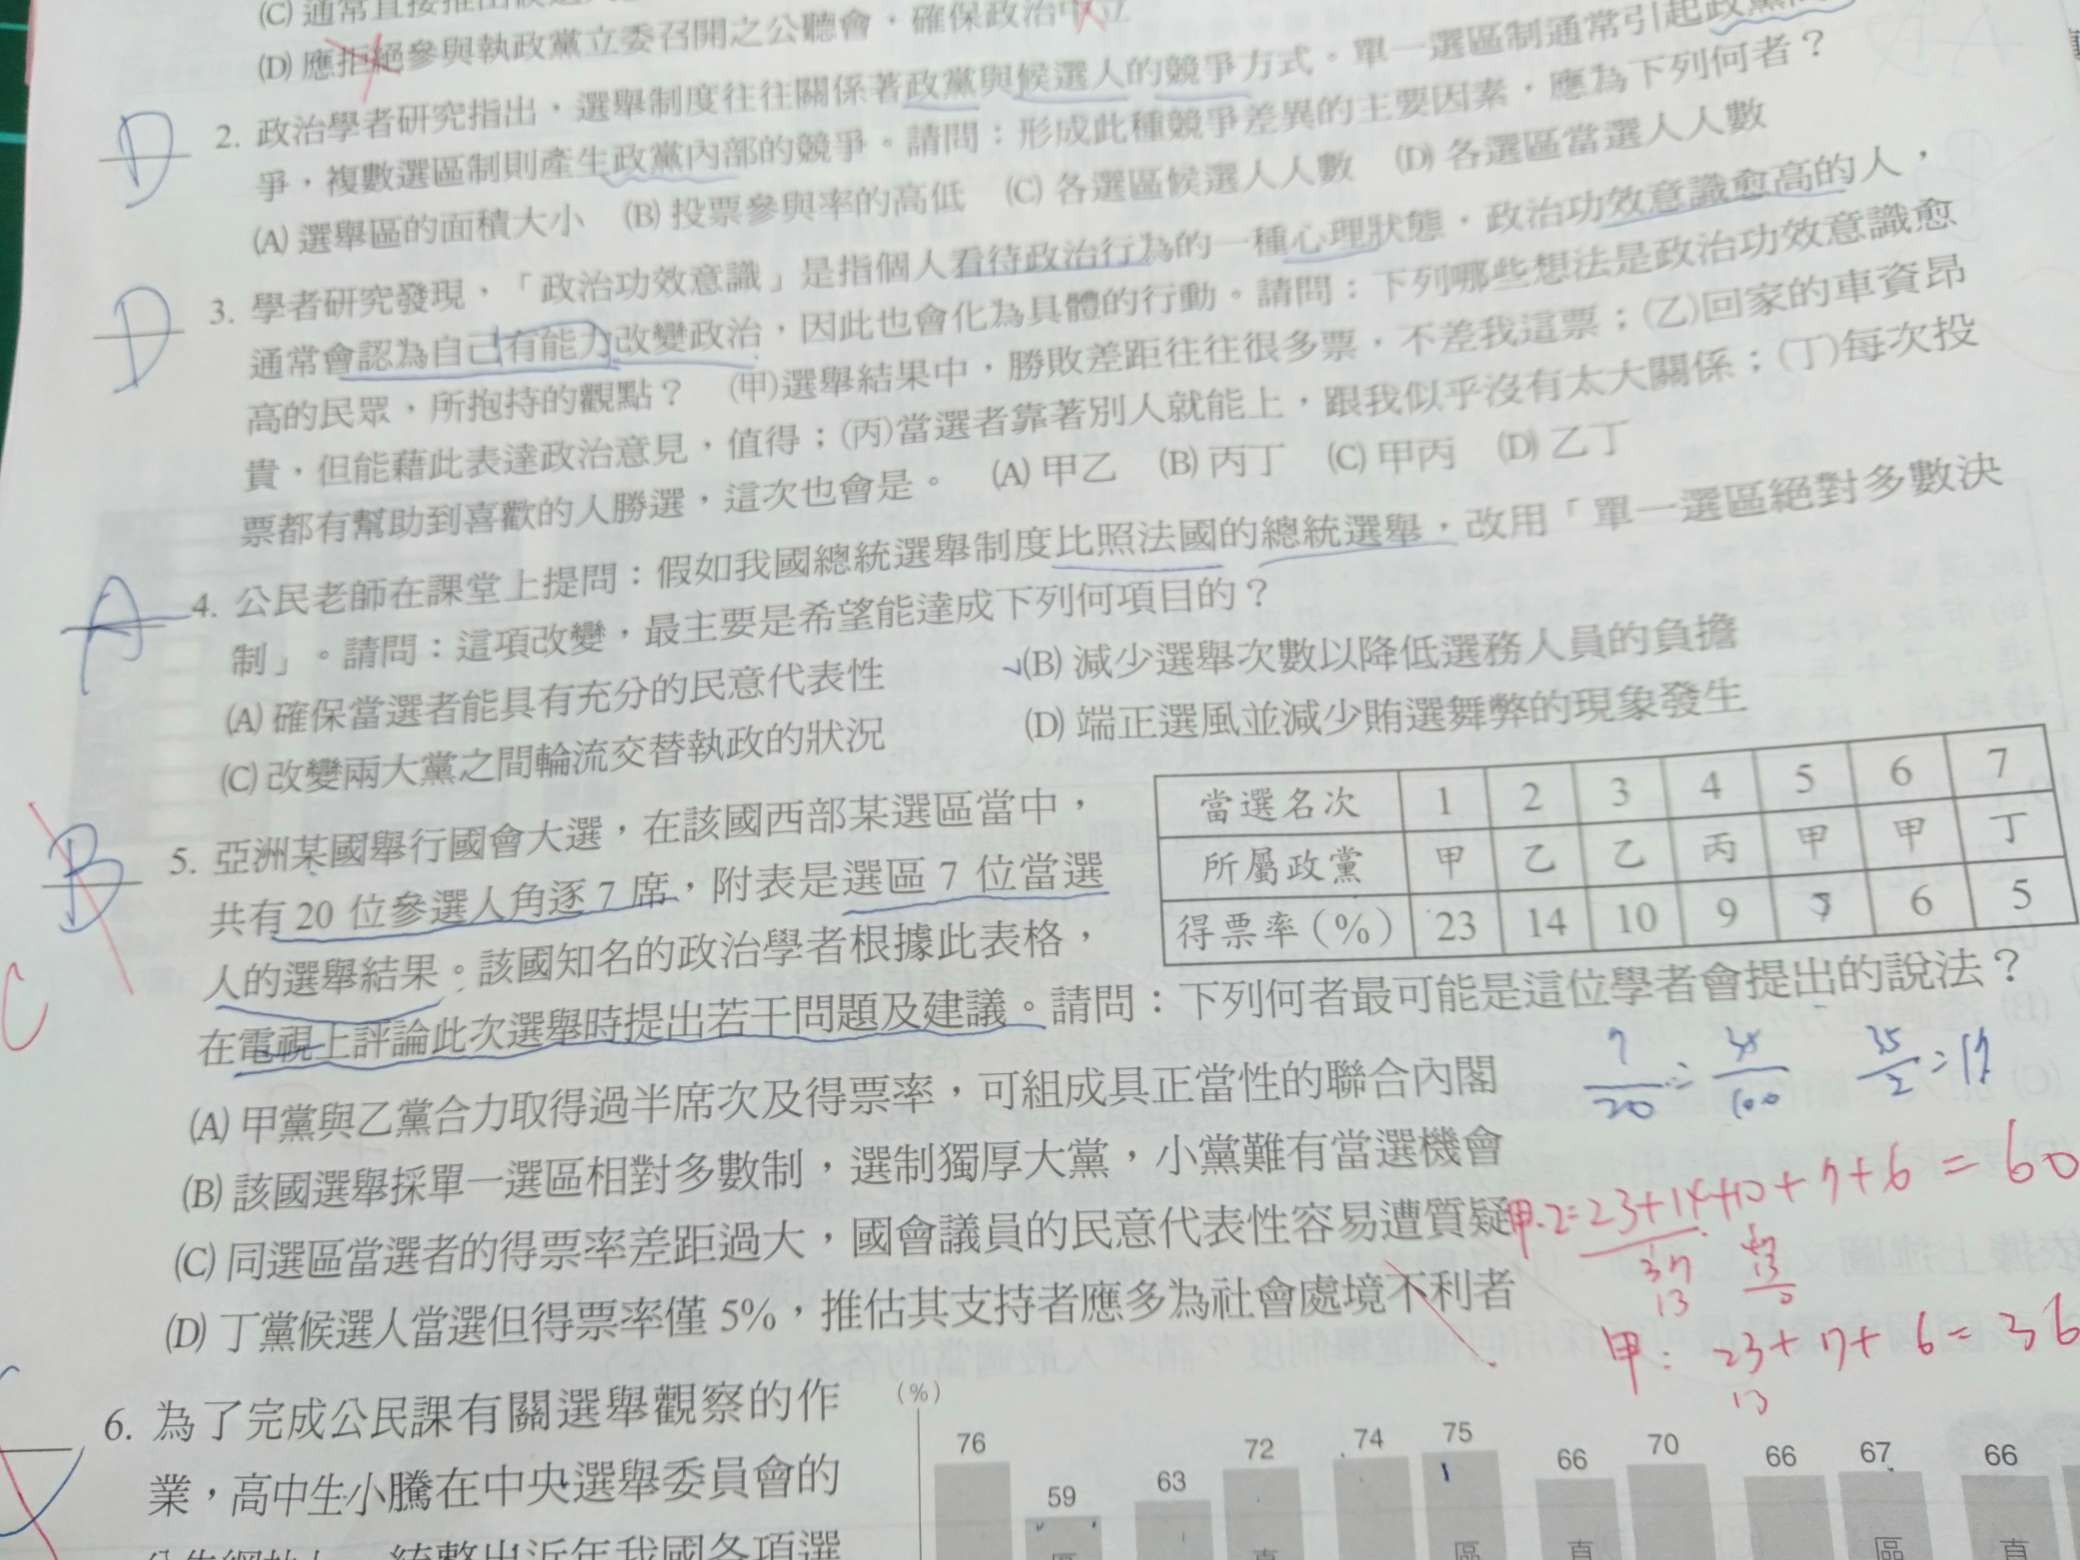 (D) 應拒絕參與執政黨立委召開之公聽會，確保政治中立
D
2. 政治學者研究指出，選舉制度往往關係著政黨與候選人的競爭方式。單一選區制通常引起政黨
爭，複數選區制則產生政黨內部的競爭。請問：形成此種競爭差異的主要因素，應為下列何者？
(A) 選舉區的面積大小 (B) 投票參與率的高低 (C) 各選區候選人人數 (D) 各選區當選人人數
D
3. 學者研究發現，「政治功效意識」是指個人看待政治行為的一種心理狀態，政治功效意識愈高的人，
通常會認為自己有能力改變政治，因此也會化為具體的行動。請問：下列哪些想法是政治功效意識愈
高的民眾，所抱持的觀點？ (甲)選舉結果中，勝敗差距往往很多票，不差我這票；(乙)回家的車資昂
貴，但能藉此表達政治意見，值得；(丙)當選者靠著別人就能上，跟我似乎沒有太大關係；(丁)每次投
票都有幫助到喜歡的人勝選，這次也會是。 (A) 甲乙 (B) 丙丁 (C) 甲丙 (D) 乙丁
A
4. 公民老師在課堂上提問：假如我國總統選舉制度比照法國的總統選舉，改用「單一選區絕對多數決
制」。請問：這項改變，最主要是希望能達成下列何項目的？
(A) 確保當選者能具有充分的民意代表性 (B) 減少選舉次數以降低選務人員的負擔
(C) 改變兩大黨之間輪流交替執政的狀況 (D) 端正選風並減少賄選舞弊的現象發生
B
C
5. 亞洲某國舉行國會大選，在該國西部某選區當中，
共有 20 位參選人角逐 7 席，附表是選區 7 位當選
人的選舉結果。該國知名的政治學者根據此表格，
在電視上評論此次選舉時提出若干問題及建議。請問：下列何者最可能是這位學者會提出的說法？
當選名次 1 2 3 4 5 6 7
所屬政黨 甲 乙 乙 丙 甲 甲 丁
得票率(%) 23 14 10 9 7 6 5
(A) 甲黨與乙黨合力取得過半席次及得票率，可組成具正當性的聯合內閣
(B) 該國選舉採單一選區相對多數制，選制獨厚大黨，小黨難有當選機會
(C) 同選區當選者的得票率差距過大，國會議員的民意代表性容易遭質疑
(D) 丁黨候選人當選但得票率僅 5%，推估其支持者應多為社會處境不利者
甲.乙=23+14+10+7+6=60
37
13
甲: 23+7+6=36
13
6. 為了完成公民課有關選舉觀察的作
業，高中生小騰在中央選舉委員會的
(%)
76 59 63 72 74 75 66 70 66 67 66